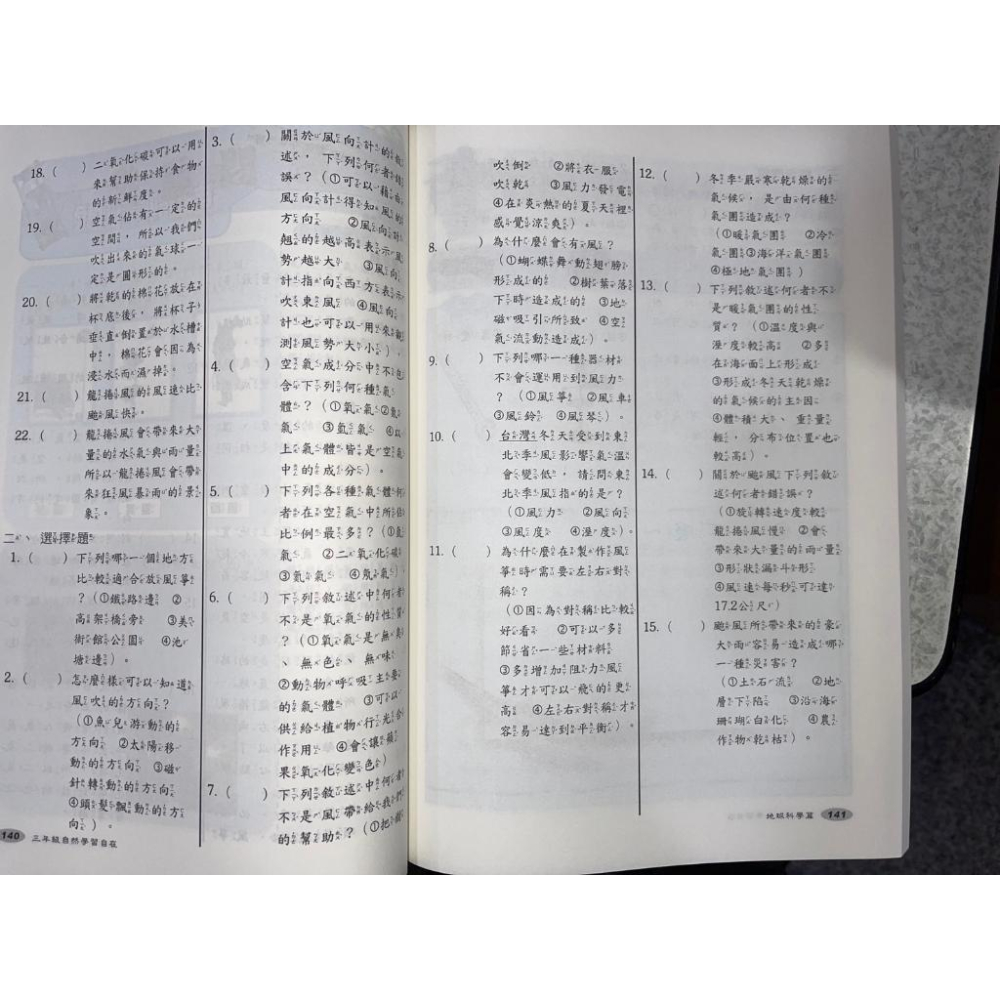 18. ( ) 二氧化碳可以用
來幫助保持食物
的新鮮度。
19. ( ) 空氣佔有一定的
空間，所以我們
吹出來的氣球一
定是圓形的。
20. ( ) 將乾的棉花放在
杯底後，將杯子
垂直倒置於水槽
中，棉花會因為
浸水而濕掉。
21. ( ) 龍捲風的風速比
颱風快。
22. ( ) 龍捲風會帶來大
量的水氣與雨量
所以龍捲風會帶
來狂風暴雨的景
象。
二、選擇題
1. ( ) 下列哪一個地方
比較適合放風箏
？（①鐵路邊 ②
高架橋旁 ③美
術館公園 ④池
塘邊）。
2. ( ) 怎麼樣可以知道
風吹的方向？
（①魚兒游動的
方向 ②太陽移
動的方向 ③磁
針轉動的方向
④頭髮飄動的方
向）。
140 三年級自然學習自在
3. ( ) 關於風向計的敘
述，下列何者錯
誤？（①可以藉由
風向計得知風的
方向 ②風向計
翹的越高表示風
勢越大 ③風向
計指向西方表示
吹東風 ④風向
計也可以用來觀
測風勢大小）。
4. ( ) 空氣成分中不包
含下列何種氣
體？（①氧氣②氮
氣 ③氬氣 ④以
上氣體皆是空氣
中的成分）。
5. ( ) 下列各種氣體何
者在空氣中所佔
比例最多？（①氧
氣 ②二氧化碳
③氮氣 ④氖氣）。
6. ( ) 下列敘述中何者
不是氧氣的性質
？（①氧氣是無臭
、無色、無味
②動物呼吸主要
的氣體 ③可以
供給植物行光合
作用 ④會讓蘋
果氧化變色）
7. ( ) 下列敘述中何者
不是風帶給我們
的幫助？（①把樹
吹倒 ②將衣服
吹乾 ③風力發電
④在炎熱的夏天裡
感覺涼爽）。
8. ( ) 為什麼會有風？
（①蝴蝶舞動翅膀
形成的 ②樹葉落
下時造成的 ③地
磁吸引所致 ④空
氣流動造成）。
9. ( ) 下列哪一種器材
不會運用到風力
？（①風箏 ②風車
③風鈴 ④風琴）。
10. ( ) 台灣冬天受到東
北季風影響氣溫
會變低，請問東
北季風指的是？
（①風力 ②風向
③風度 ④溼度）。
11. ( ) 為什麼在製作風
箏時需要左右對
稱？
（①因為對稱比較
好看 ②可以多
節省一些材料
③多增加阻力風
箏才可以飛的更
高 ④左右對稱才
容易達到平衡）。
12. ( ) 冬季嚴寒乾燥的
氣候，是由何種
氣團造成？
（①暖氣團 ②冷
氣團③海洋氣團
④極地氣團）
13. ( ) 下列敘述何者不
是暖氣團的性
質？（①溫度與
溼度較高 ②多
在海面上形成
③形成冬天乾燥
的氣候的主因
④體積大、重量
輕，分布位置也
較高）。
14. ( ) 關於颱風下列敘
述何者錯誤？
（①旋轉速度較
龍捲風慢 ②會
帶來大量的雨量
③形狀漏斗形
④風速每秒可達
17.2公尺）
15. ( ) 颱風所帶來的豪
大雨容易造成哪
一種災害？
（①土石流 ②地
層下陷 ③沿海
珊瑚白化 ④農
作物乾枯）。
地球科學篇 141